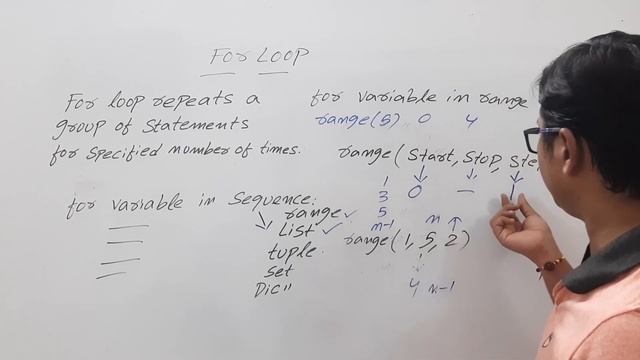 For Loop
For loop repeats a
group of Statements
for specified number of times.
for variable in Sequence:
range ✓
List ✓
tuple.
set
Dic"
for variable in range
range(5) 0 4
range(Start, Stop, Ste
1
3 0 — 1
5
n-1 n ↑
range(1, 5, 2)
4 n-1